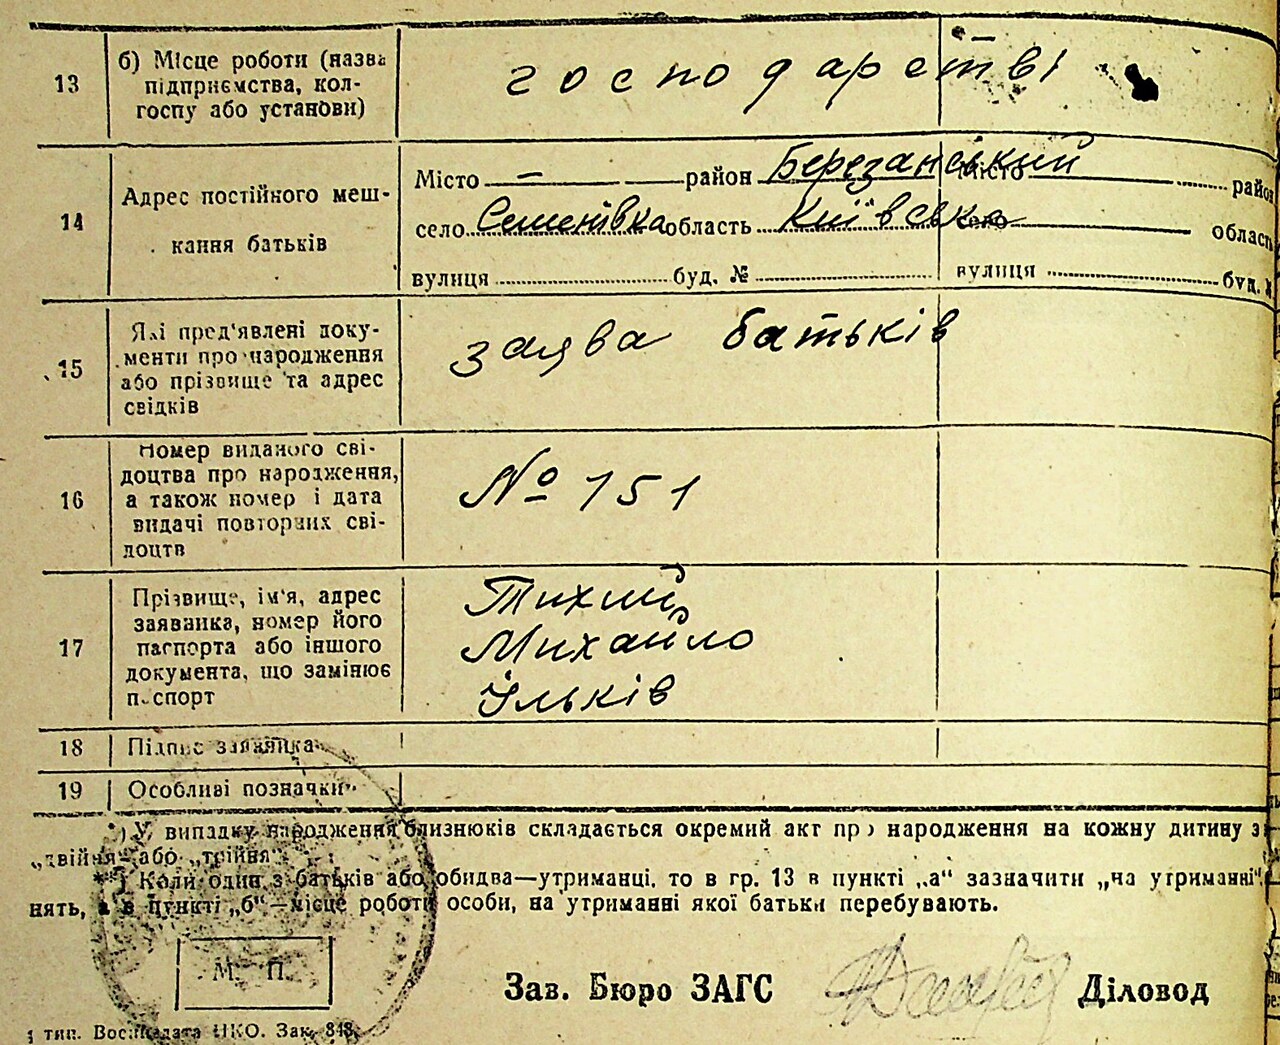 13 б) Місце роботи (назва підприємства, колгоспу або установи) господарстві
14 Адрес постійного меш-
кання батьків
Місто — район Березанський Місто район
село Семенівка область Київська село область
вулиця буд. № вулиця буд. №
15 Які пред'явлені доку-
менти про народження
або прізвище та адрес
свідків
заява батьків
16 Номер виданого сві-
доцтва про народження,
а також номер і дата
видачі повторних сві-
доцтв
№ 151
17 Прізвище, ім'я, адрес
заявника, номер його
паспорта або іншого
документа, що замінює
паспорт
Тихий
Михайло
Ільків
18 Підпис заявника
19 Особливі позначки
*) У випадку народження близнюків складається окремий акт про народження на кожну дитину з
„двійня“ або „трійня“.
**) Коли один з батьків або обидва—утриманці, то в гр. 13 в пункті „а“ зазначити „на утриманні“,
нять, а в пункті „б“—місце роботи особи, на утриманні якої батьки перебувають.
М. П.
Зав. Бюро ЗАГС Діловод
тип. НКО. Зак. 848